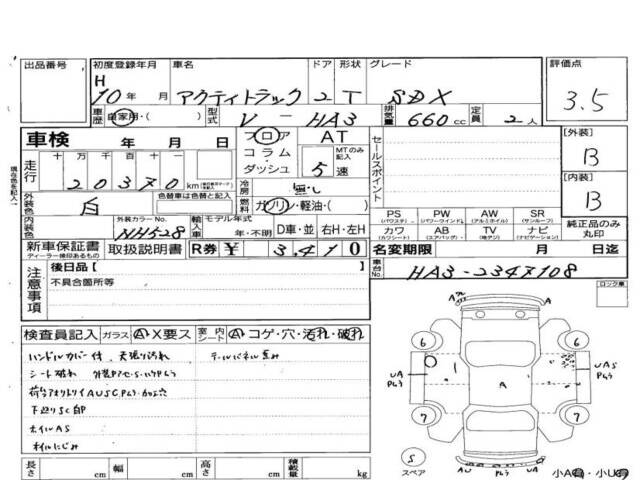 出品番号 初度登録年月 車名 ドア 形状 グレード 評価点
H 10年 月 アクティトラック 2 T SDX 3.5
車歴 自家用・( ) 型式 V-HA3 排気量 660cc 定員 2人
車検 年 月 日 フロア AT セールスポイント [外装]
現在色を記入→ 走行 十 万 千 百 十 コラム・ダッシュ MTのみ記入 5速 B
20370km 冷房 [内装]
外装色 白 色替車は色替と記入 燃料 ガソリン・軽油・( ) B
内装色 外装カラーNo. NH528 輸入車 モデル年式 年・不明 D車・並 右H・左H
PS (パワステ) PW (パワーウインド) AW (アルミホイル) SR (サンルーフ)
カワ (カワシート) AB (エアバッグ) TV (地デジ) ナビ (ナビゲーション) 純正品のみ丸印
新車保証書 ディーラー検印あるもの 取扱説明書 R券 ¥ 3,410 名変期限 月 日迄
注意事項 後日品[ ] 車台No. HA3-2347108
不具合箇所等 ロック車
検査員記入 ガラス A・X要ス 室内シート A・コゲ・穴・汚れ・破れ
ハンドルカバー付 天張り汚れ テールパネル歪み
シート破れ
下廻りSC自P
ホイルAS
オイルにじみ
A A
6 6
UA S Pムラ A UAS Pムラ
7 7
S スペア AU UA 小A・小U
長さ cm 幅 cm 高さ cm 積載量 kg